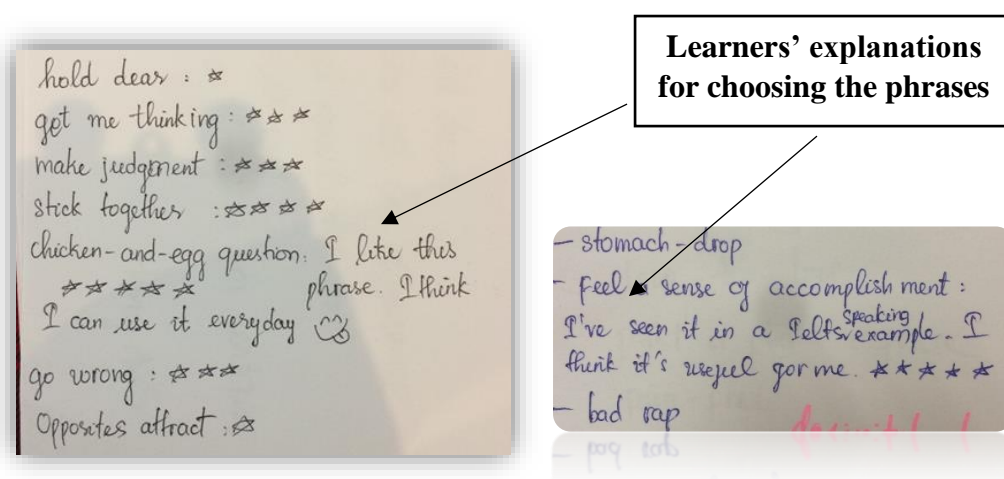 Learners' explanations
for choosing the phrases
hold dear : ☆
get me thinking : ☆☆☆
make judgment : ☆☆☆
stick together : ☆☆☆☆
chicken-and-egg question: I like this
☆☆☆☆☆ phrase. I think
I can use it everyday
go wrong : ☆☆☆
Opposites attract : ☆
- stomach-drop
- feel a sense of accomplishment :
I've seen it in a Ielts speaking example. I
think it's useful for me. ★★★★★
- bad rap